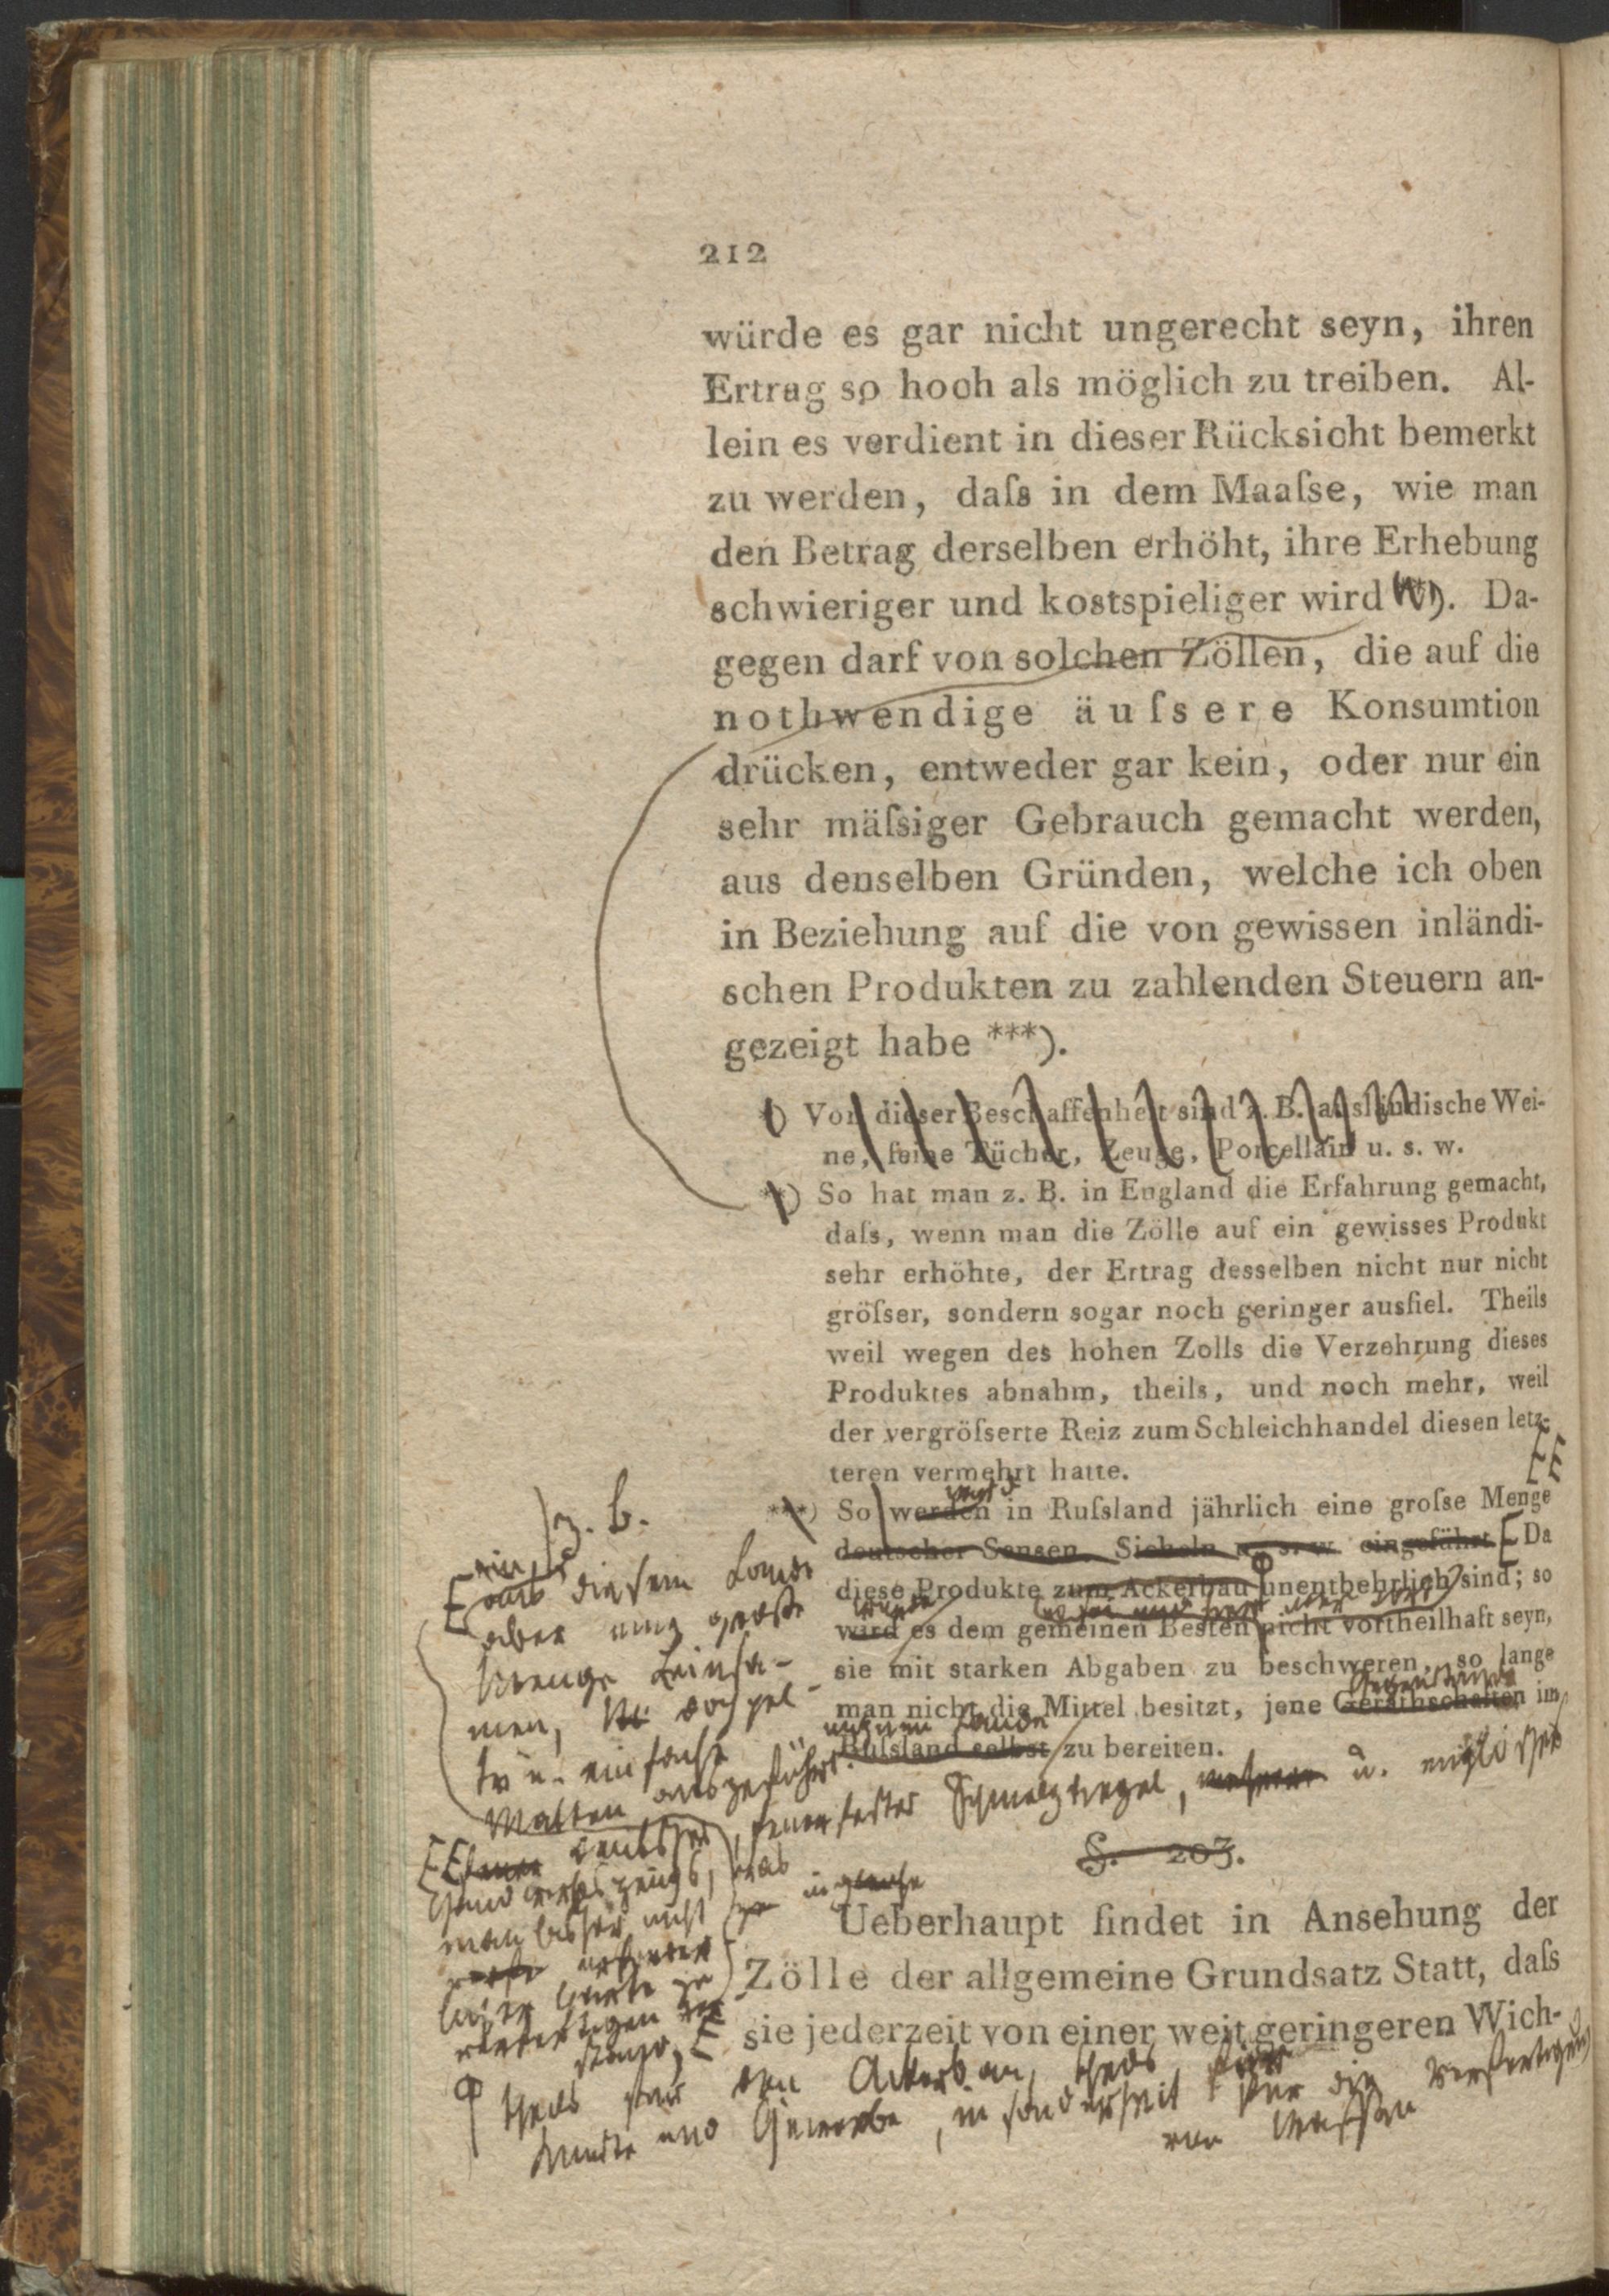 212
würde es gar nicht ungerecht seyn, ihren
Ertrag so hoch als möglich zu treiben. Al-
lein es verdient in dieser Rücksicht bemerkt
zu werden, daſs in dem Maaſse, wie man
den Betrag derselben erhöht, ihre Erhebung
schwieriger und kostspieliger wird **). Da-
gegen darf von solchen Zöllen, die auf die
nothwendige äuſsere Konsumtion
drücken, entweder gar kein, oder nur ein
sehr mäſsiger Gebrauch gemacht werden,
aus denselben Gründen, welche ich oben
in Beziehung auf die von gewissen inländi-
schen Produkten zu zahlenden Steuern an-
gezeigt habe ***).
*) Von dieser Beschaffenheit sind z. B. ausländische Wei-
ne, feine Tücher, Zeuge, Porcellain u. s. w.
**) So hat man z. B. in England die Erfahrung gemacht,
daſs, wenn man die Zölle auf ein gewisses Produkt
sehr erhöhte, der Ertrag desselben nicht nur nicht
gröſser, sondern sogar noch geringer ausfiel. Theils
weil wegen des hohen Zolls die Verzehrung dieses
Produktes abnahm, theils, und noch mehr, weil
der vergröſserte Reiz zum Schleichhandel diesen letz-
teren vermehrt hatte.
***) So werden in Ruſsland jährlich eine groſse Menge
deutscher Sensen, Sicheln u. s. w. eingeführt. Da
diese Produkte zum Ackerbau unentbehrlich sind; so
wird es dem gemeinen Besten nicht vortheilhaft seyn,
sie mit starken Abgaben zu beschweren, so lange
man nicht die Mittel besitzt, jene Geräthschaften im
Ruſsland selbst zu bereiten.
z. b.
aus diesem Lande
aber eine große
Menge Leinsa-
men,
ausgeführt.
Lande
Schmelztiegel, u. englischer
§. 203.
Ueberhaupt findet in Ansehung der
Zölle der allgemeine Grundsatz Statt, daſs
sie jederzeit von einer weit geringeren Wich-
theils für den Ackerbau, theils für
und Gewerbe, in sonderheit für die